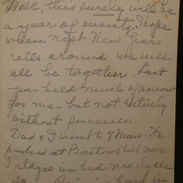 Well, this surely will be
a year of events. I hope
when next New Years
rolls around we will
all be together. Last
year held much sorrow
for me - but not entirely
without success.
Dad & I went to
at Boston
I stayed in bed nearly